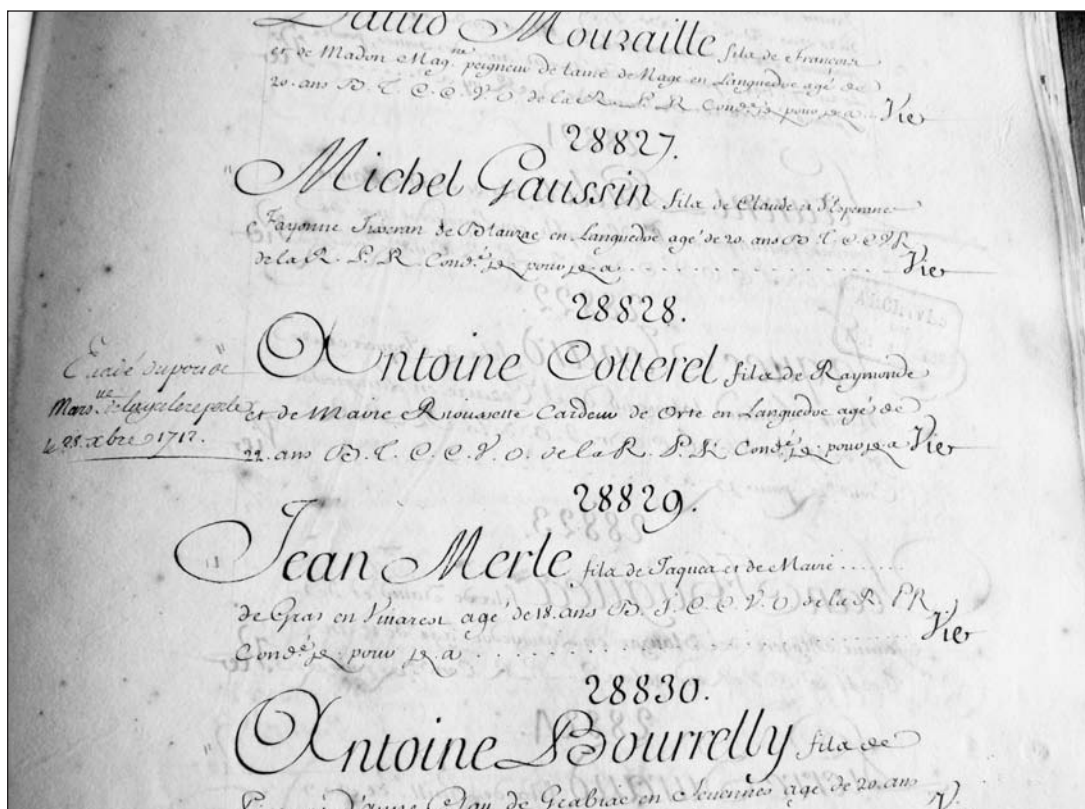 David Mouraille fils de François
et de Madon Mag.ne peigneur de laine de Nage en Languedoc agé de
20. ans B. T. C. C. V. O. de la R. P. R. Cond.é je pour je a . Vie
28827.
Michel Gaussin fils de Claude et d'Esperance
Fayonne de Blauzac en Languedoc agé de 20. ans B. T. C. C. V R
de la R. P. R Cond.é je pour je a . . . . . . . . . . . . . . . Vie
28828.
Antoine Cotterel fils de Raymonde
et de Marie Cardeur de Orte en Languedoc agé de
22. ans B. T. C. C. V. O. de la R. P. R Cond.é je pour je a Vie
Evadé du
le 28. xbre 1712.
28829.
Jean Merle fils de Jaques et de Marie . . . . . .
de Gras en Vivarest agé de 18. ans B. T. C. C. V. O de la R P R.
Cond.é je pour je a . . . . . . . . . . . . . . . Vie
28830.
Antoine Bourrelly fils de
de en Sevennes agé de 20. ans